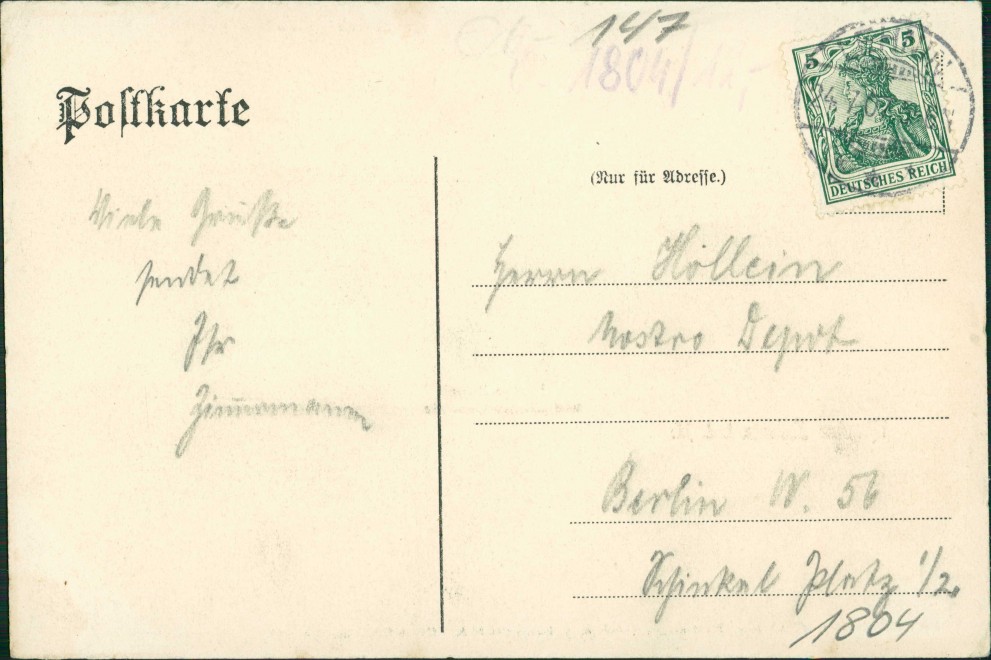 147
1804
Postkarte
5 5
DEUTSCHES REICH
(Nur für Adresse.)
Viele Grüße
sendet
Ihr
Zimmermann
Herrn Höllein
Nostro Depot
Berlin W. 56
Schinkel Platz 1/2.
1804